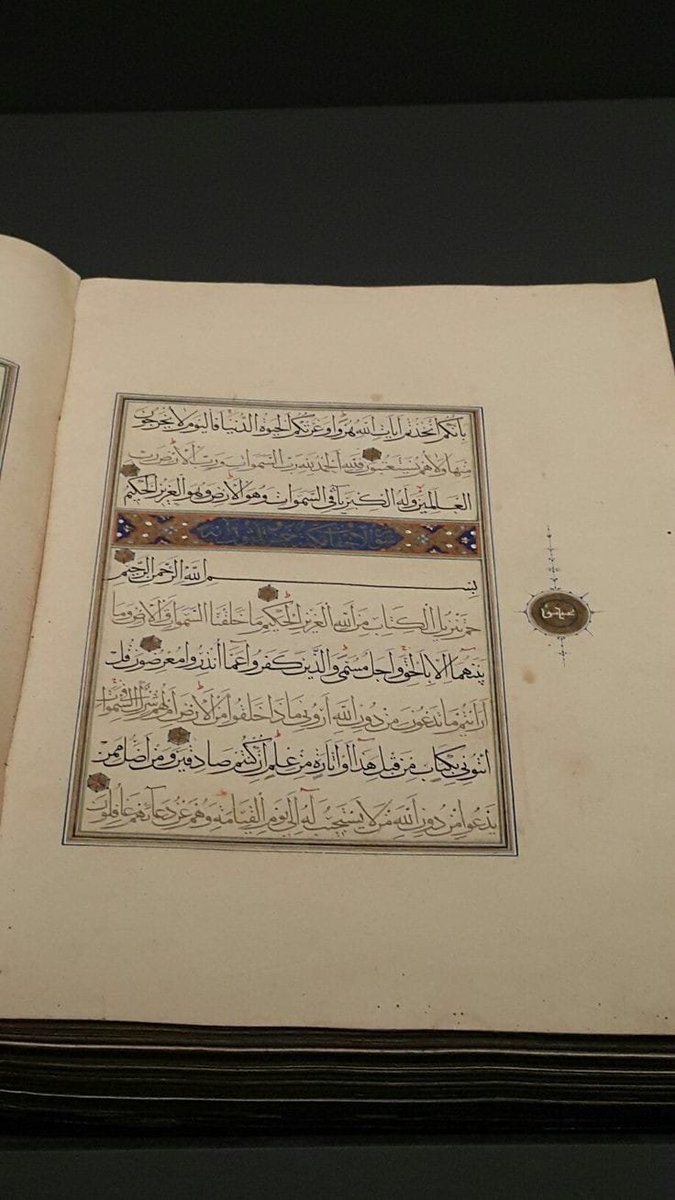 بِأَنَّكُمُ اتَّخَذْتُمْ آيَاتِ اللَّهِ هُزُوًا وَغَرَّتْكُمُ الْحَيٰوةُ الدُّنْيَا فَالْيَوْمَ لَا يُخْرَجُونَ
مِنْهَا وَلَا هُمْ يُسْتَعْتَبُونَ فَلِلَّهِ الْحَمْدُ رَبِّ السَّمَوَاتِ وَرَبِّ الْأَرْضِ رَبِّ
الْعَالَمِينَ وَلَهُ الْكِبْرِيَاءُ فِي السَّمَوَاتِ وَالْأَرْضِ وَهُوَ الْعَزِيزُ الْحَكِيمُ
سورة الاحقاف مكية خمس وثلثون آية
بِسْمِ اللَّهِ الرَّحْمَنِ الرَّحِيمِ
حم تَنْزِيلُ الْكِتَابِ مِنَ اللَّهِ الْعَزِيزِ الْحَكِيمِ مَا خَلَقْنَا السَّمَوَاتِ وَالْأَرْضَ وَمَا
بَيْنَهُمَا إِلَّا بِالْحَقِّ وَأَجَلٍ مُسَمًّى وَالَّذِينَ كَفَرُوا عَمَّا أُنْذِرُوا مُعْرِضُونَ قُلْ
أَرَأَيْتُمْ مَا تَدْعُونَ مِنْ دُونِ اللَّهِ أَرُونِي مَاذَا خَلَقُوا مِنَ الْأَرْضِ أَمْ لَهُمْ شِرْكٌ فِي السَّمَوَاتِ
ائْتُونِي بِكِتَابٍ مِنْ قَبْلِ هَذَا أَوْ أَثَارَةٍ مِنْ عِلْمٍ إِنْ كُنْتُمْ صَادِقِينَ وَمَنْ أَضَلُّ مِمَّنْ
يَدْعُوا مِنْ دُونِ اللَّهِ مَنْ لَا يَسْتَجِيبُ لَهُ إِلَى يَوْمِ الْقِيَامَةِ وَهُمْ عَنْ دُعَائِهِمْ غَافِلُونَ